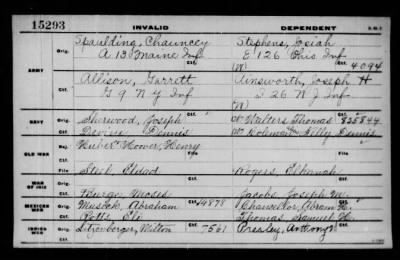 15293 INVALID DEPENDENT
ARMY
Orig. Spaulding, Chauncey Stephens, Josiah
A 13 Maine Inf E 126 Ohio Inf
Ctf. (W) Ctf. 4094
Orig. Allison, Garrett Ainsworth, Joseph H
G 9 N Y Inf I 26 N J Inf
Ctf. (W)
NAVY Orig. Sherwood, Joseph Walters Thomas 835844
Devine Dennis Dennis
OLD WAR Rej. Hower, Henry
Steel, Eldad Rogers, Elkanah
WAR OF 1812 Burge Moses Jacobs, Joseph M.
MEXICAN WAR Orig. Musick, Abraham Ctf. 14878 Chancellor, Abram
Potts, Eli Thomas, Samuel H.
INDIAN WARS Orig. Litzenberger, Milton Ctf. 7561 Presley, Anthony